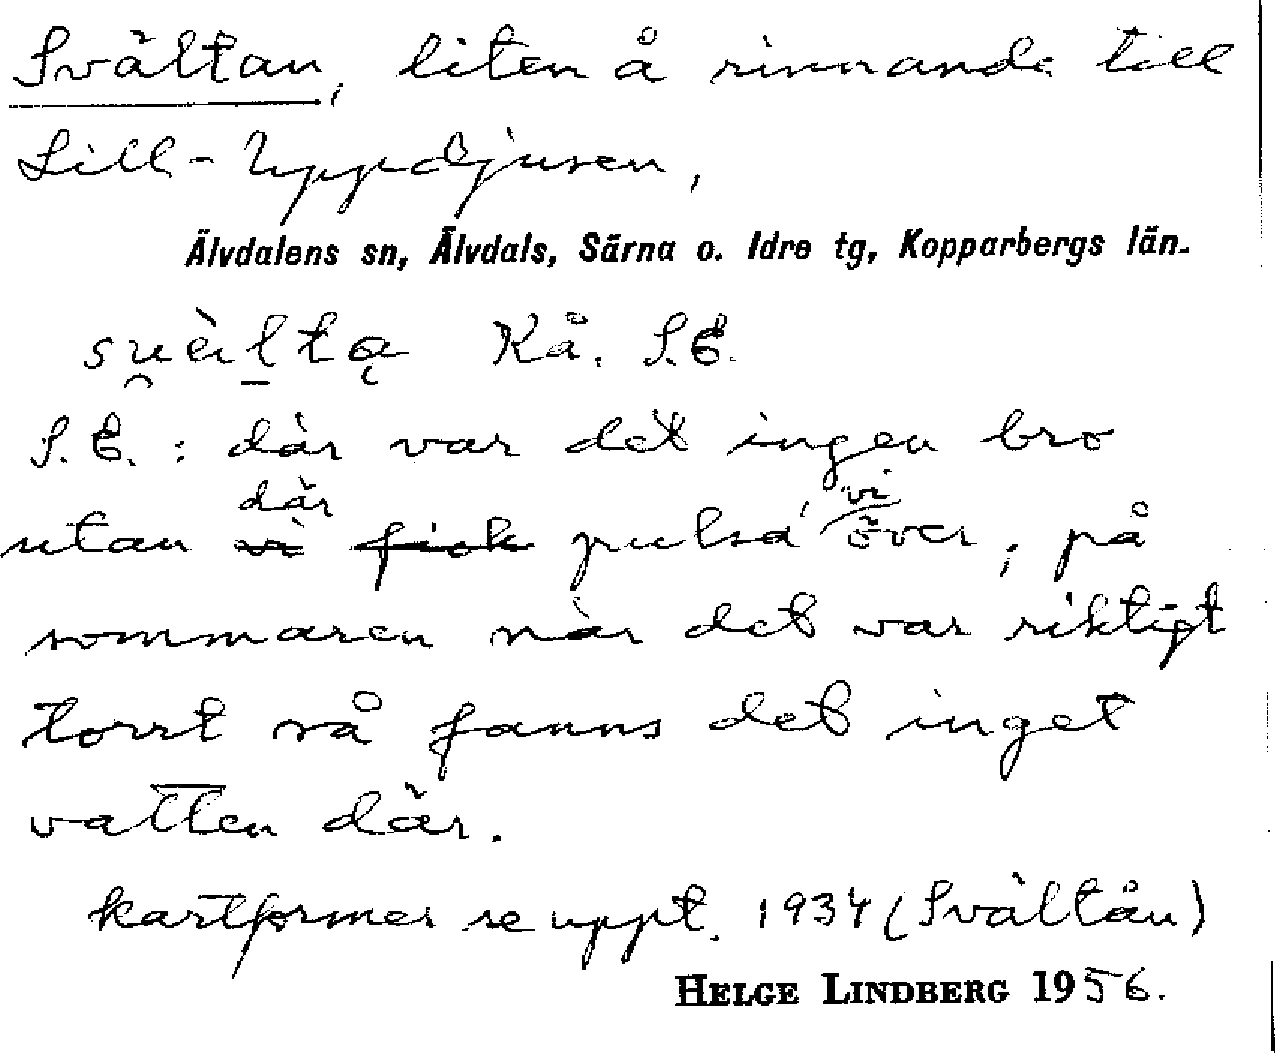 Svältan, liten å rinnande till
Lill-Uppdjusen,
Älvdalens sn, Älvdals, Särna o. Idre tg, Kopparbergs län.
Kå. S.E.
S.E.: där var det ingen bro
där vi
utan vi fick pulsa över, på
sommaren när det var riktigt
torrt så fanns det inget
vatten där.
kartformer se uppt. 1934 (Svältån)
HELGE LINDBERG 1956.